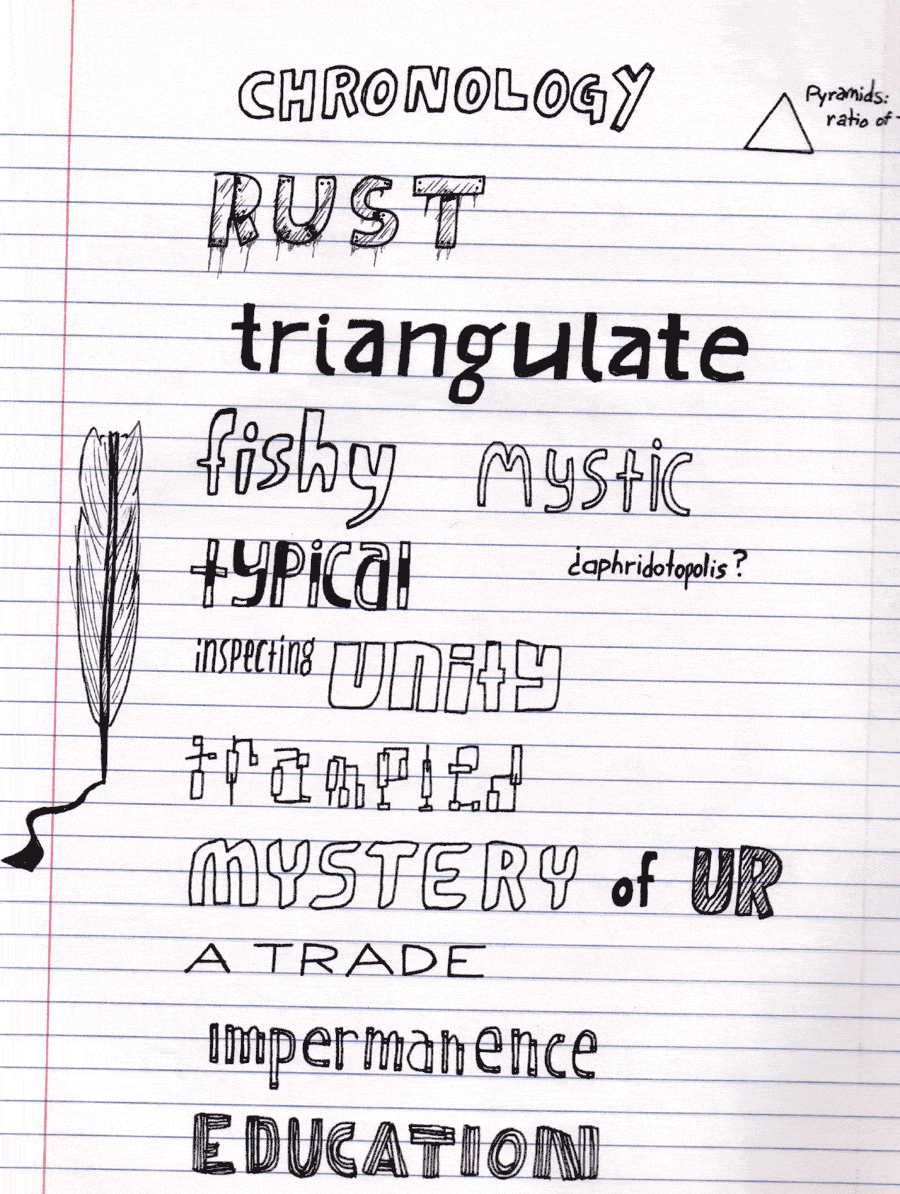 CHRONOLOGY
Pyramids:
ratio of
RUST
triangulate
fishy mystic
typical ¿aphridotopolis?
inspecting unity
trampled
MYSTERY of UR
A TRADE
impermanence
EDUCATION